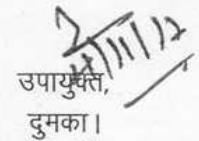 4/11/12
उपायुक्त,
दुमका।